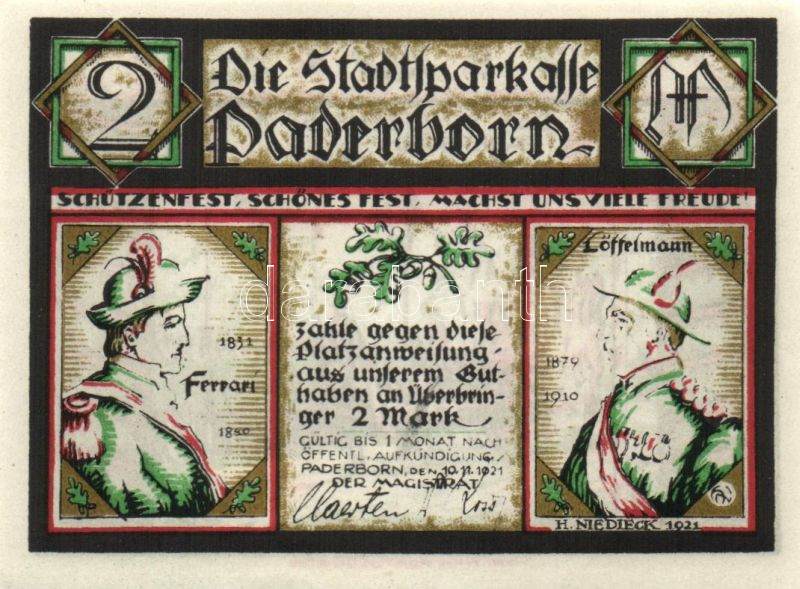 2
Die Stadtsparkasse
Paderborn
M
SCHÜTZENFEST, SCHÖNES FEST, MACHST UNS VIELE FREUDE!
1831
Ferrari
1840
zahle gegen diese
Platzanweisung
aus unserem Gut-
haben an Überbrin-
ger 2 Mark
GÜLTIG BIS 1 MONAT NACH
ÖFFENTL. AUFKÜNDIGUNG.
PADERBORN, DEN 10.11.1921
DER MAGISTRAT
Löffelmann
1879
1910
H. NIEDIECK 1921
darabanth